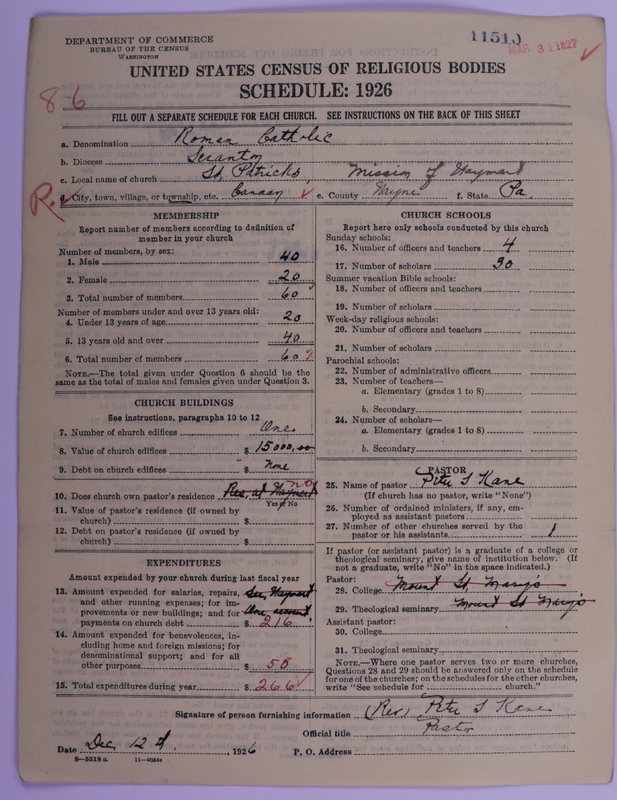 DEPARTMENT OF COMMERCE
BUREAU OF THE CENSUS
WASHINGTON
11510
MAR 31 1927
UNITED STATES CENSUS OF RELIGIOUS BODIES
SCHEDULE: 1926
86
FILL OUT A SEPARATE SCHEDULE FOR EACH CHURCH. SEE INSTRUCTIONS ON THE BACK OF THIS SHEET
a. Denomination Roman Catholic
b. Diocese Scranton
c. Local name of church St. Patricks, Mission of Waymart
R. d. City, town, village, or township, etc. Canaan e. County Wayne f. State Pa
MEMBERSHIP
Report number of members according to definition of
member in your church
Number of members, by sex:
1. Male 40
2. Female 20
3. Total number of members 60
Number of members under and over 13 years old:
4. Under 13 years of age 20
5. 13 years old and over 40
6. Total number of members 60
NOTE.—The total given under Question 6 should be the
same as the total of males and females given under Question 3.
CHURCH BUILDINGS
See instructions, paragraphs 10 to 12
7. Number of church edifices One
8. Value of church edifices $ 15000.00
9. Debt on church edifices $ None
10. Does church own pastor's residence Res. at Waymart no
Yes or No
11. Value of pastor's residence (if owned by
church) $
12. Debt on pastor's residence (if owned by
church) $
EXPENDITURES
Amount expended by your church during last fiscal year
13. Amount expended for salaries, repairs, See, Waymart
and other running expenses; for im-
provements or new buildings; and for One account
payments on church debt $ 216
14. Amount expended for benevolences, in-
cluding home and foreign missions; for
denominational support; and for all
other purposes $ 50
15. Total expenditures during year $ 266
CHURCH SCHOOLS
Report here only schools conducted by this church
Sunday schools:
16. Number of officers and teachers 4
17. Number of scholars 30
Summer vacation Bible schools:
18. Number of officers and teachers
19. Number of scholars
Week-day religious schools:
20. Number of officers and teachers
21. Number of scholars
Parochial schools:
22. Number of administrative officers
23. Number of teachers—
a. Elementary (grades 1 to 8)
b. Secondary
24. Number of scholars—
a. Elementary (grades 1 to 8)
b. Secondary
PASTOR
25. Name of pastor Peter T Kane
(If church has no pastor, write "None")
26. Number of ordained ministers, if any, em-
ployed as assistant pastors
27. Number of other churches served by the
pastor or his assistants 1
If pastor (or assistant pastor) is a graduate of a college or
theological seminary, give name of institution below. (If
not a graduate, write "No" in the space indicated.)
Pastor:
28. College Mount St. Mary's
29. Theological seminary Mount St Mary's
Assistant pastor:
30. College
31. Theological seminary
NOTE.—Where one pastor serves two or more churches,
Questions 28 and 29 should be answered only on the schedule
for one of the churches; on the schedules for the other churches,
write "See schedule for church."
Signature of person furnishing information (Rev) Peter T Kane
Official title Pastor
Date Dec 12th, 1926 P. O. Address
8—5518a 11—9054a